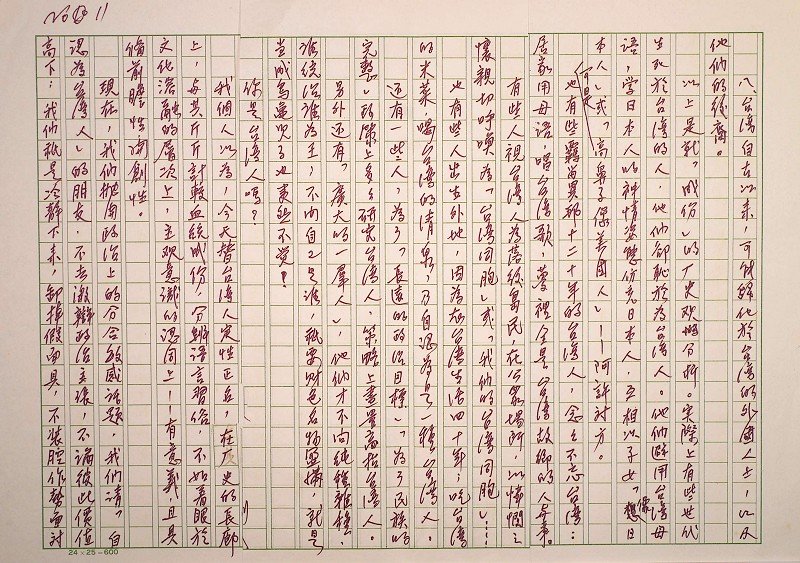 No 11
八、台灣自古以來,可能歸化於台灣的外國人士,以及
他們的後裔。
以上是就「成份」的歷史觀做分析。實際上有些世代
生死於台灣的人,他們卻恥於為台灣人。他們避用台灣母
語,學日本人的神情姿態仿竞日本人,互相以子女「想像日
本人」或「高鼻子像美國人」——阿諛對方。
也有些羈留異邦十二十年的台灣人,念念不忘台灣:
居家用母語,唱台灣歌,夢裡全是台灣故鄉的人與事。
有些人視台灣人為落後島民,在公眾場所,以憐憫之
懷親切呼喚為「台灣同胞」或「我們的台灣同胞」……
也有些人出生外地,因為在台灣生活四十年:吃台灣
的米菜,喝台灣的清泉,乃自認為是一種台灣人。
還有一些人,為了「長遠的政治目標」、「為了民族的
完整」,政策上多多研究台灣人,策略上盡量高抬台灣人。
另外還有「廣大的一羣人」,他們才不問純雜,
誰統治誰為主,不問自己是誰,祇要財色名物盈滿,就是
當成烏龜兒子也東然不覺!
你是台灣人嗎?
我個人以為,今天替台灣人定性正名,在歷史的長廊
上,毋其斤斤計較血統成份,分辨語言習俗,不如着眼於
文化溶融的層次上,主观意識的認同上——有意義且具
備前瞻性與創性。
現在,我們拋開政治上的分合敏感話題,我們請「自
認為台灣人」的朋友,不去激辯政治主張,不論彼此價值
高下:我們祇是冷靜下來,卸掉假面具,不裝腔作勢面對
24×25=600